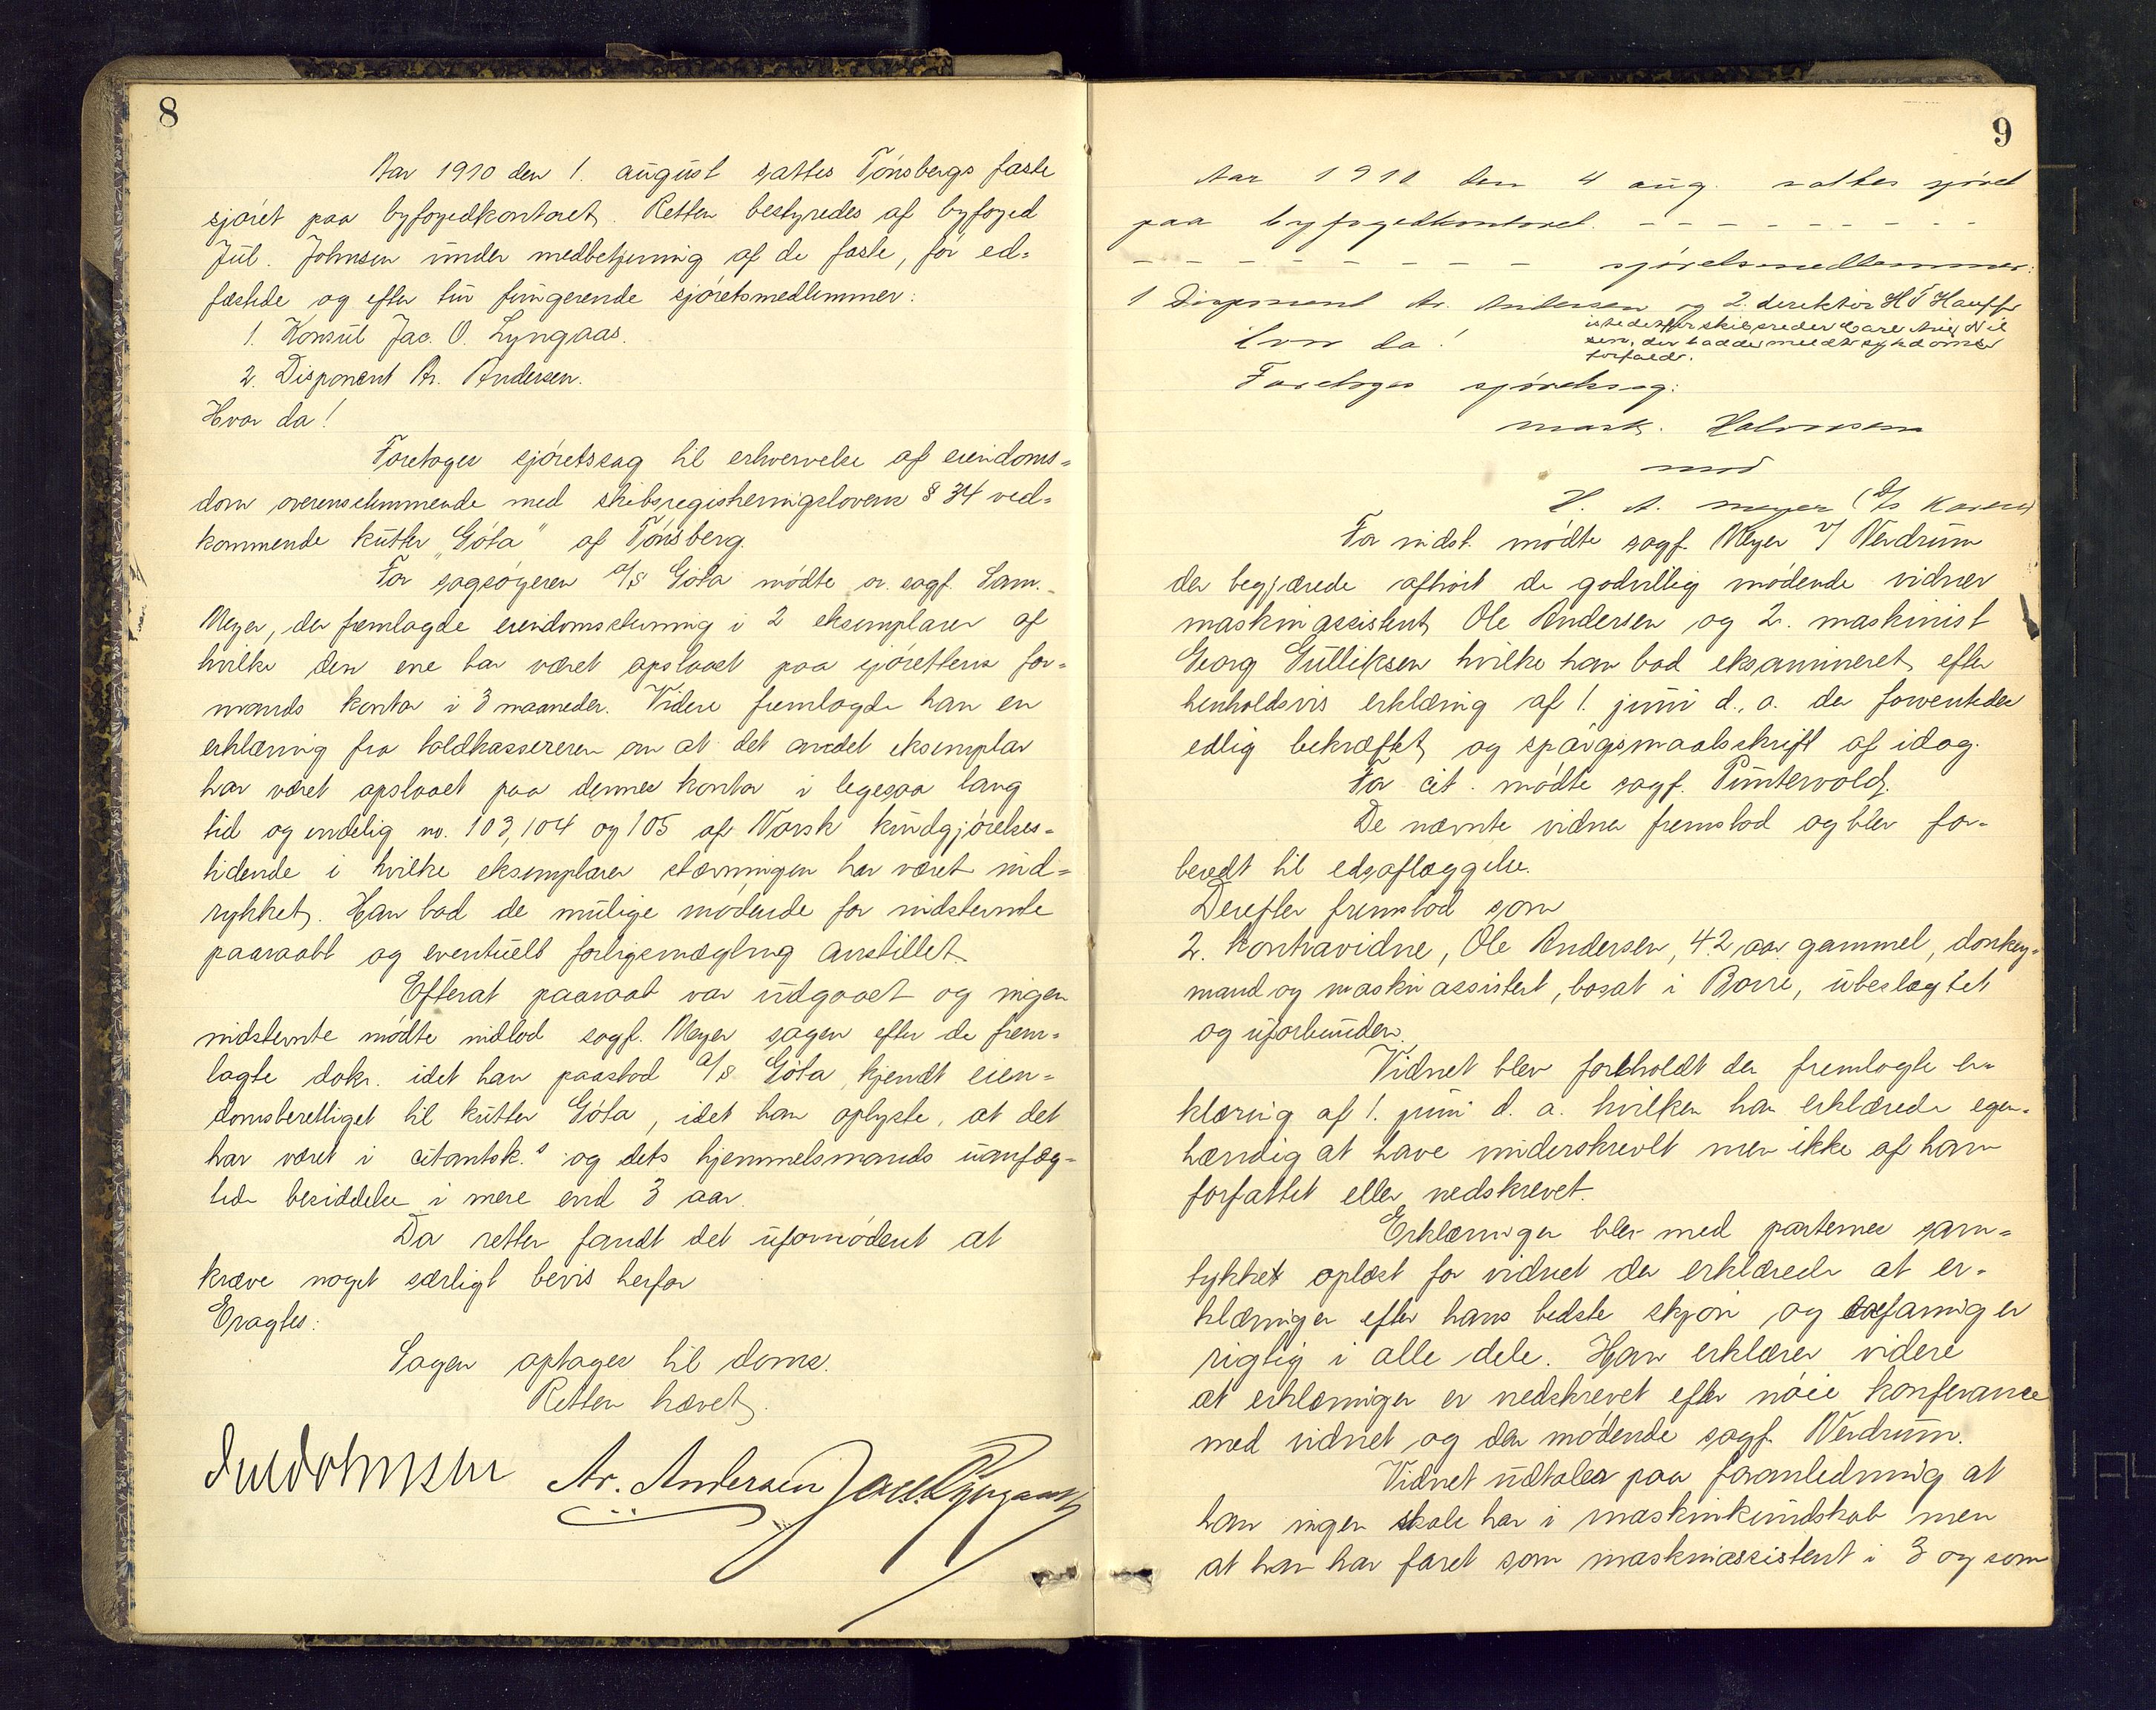 8
Aar 1910 den 1. august sattes Tønsbergs faste
sjøret paa byfogedkontoret. Retten bestyredes af byfoged
Jul. Johnsen under medbetjening af de faste, før ed-
fæstede og efter tur fungerende sjøretsmedlemmer:
1. Konsul Jac. O. Lyngaas.
2. Disponent Ar. Andersen.
Hvor da!
Foretoges sjøretssag til erhvervelse af eiendoms-
dom overensstemmende med skibsregistreringslovens § 34 ved-
kommende kutter "Gøta" af Tønsberg
For sagsøgeren A/S Gøta mødte o. sagf. Sam.
Meyer, der fremlagde eiendomsstevning i 2 eksemplarer af
hvilke den ene har været opslaaet paa sjørettens for-
mands kontor i 3 maaneder. Videre fremlagde han en
erklæring fra toldkassereren om at det andet eksemplar
har været opslaaet paa dennes kontor i ligesaa lang
tid og endelig no. 103, 104 og 105 af Norsk kundgjørelses-
tidende i hvilke eksemplarer stævningen har været ind-
rykket. Han bad de mulige mødende for indstevnte
paaraabt og eventuelt forligsmægling anstillet.
Efterat paaraab var udgaaet og ingen
indstevnte mødte indlod sagf. Meyer sagen efter de frem-
lagte dokr. idet han paastod A/S Gøta kjendt eien-
domsberettiget til kutter Gøta, idet han oplyste, at det
har været i citantsk.s og dets hjemmelsmands uanfæg-
tede besiddelse i mere end 3 aar.
Da retten fandt det ufornødent at
kræve noget særligt bevis herfor
Eragtes:
Sagen optages til doms.
Retten hævet.
Jul Johnsen Ar. Andersen Jac. O. Lyngaas
9
Aar 1910 den 4 aug. sattes sjøret
paa byfogedkontoret. - - - - - - - - -
- - - - - - - - - sjøretsmedlemmer:
1 Disponent Ar. Andersen og 2. direktør H T Hauff
istedetfor skibsreder Carl Nil
sen, der havde meldt sygdoms
forfald.
Hvor da!
Foretoges sjøretssag:
mask. Halvorsen
mod
H. A. Meyer (D/S Karen)
For indst. mødte sagf. Meyer v/ Werdrum
der begjærede afhørt de godvillig mødende vidner
maskinassistent Ole Andersen og 2. maskinist
Georg Gulliksen hvilke han bad eksamineret efter
henholdsvis erklæring af 1. juni d. a. der forventedes
edlig bekræftet og spørgsmaalsskrift af idag.
For cit. mødte sagf. Puntervold.
De nævnte vidner fremstod og blev for-
beredt til edsaflæggelse.
Derefter fremstod som
2. kontravidne, Ole Andersen, 42 aar gammel, donkey-
mand og maskinassistent, bosat i Borre, ubeslægtet
og uforbunden.
Vidnet blev forholdt den fremlagte er-
klæring af 1. juni d. a. hvilken han erklærede egen-
hændig at have underskrevet men ikke af ham
forfattet eller nedskrevet.
Erklæringen blev med parternes sam-
tykket oplæst for vidnet der erklærede at er-
klæringen efter hans bedste skjøn og erfaring er
rigtig i alle dele. Han erklærer videre
at erklæringen er nedskrevet efter nøie konferance
med vidnet og den mødende sagf. Werdrum.
Vidnet udtaler paa foranledning at
han ingen skole har i maskinkundskab men
at han har faret som maskinassistent i 3 og som